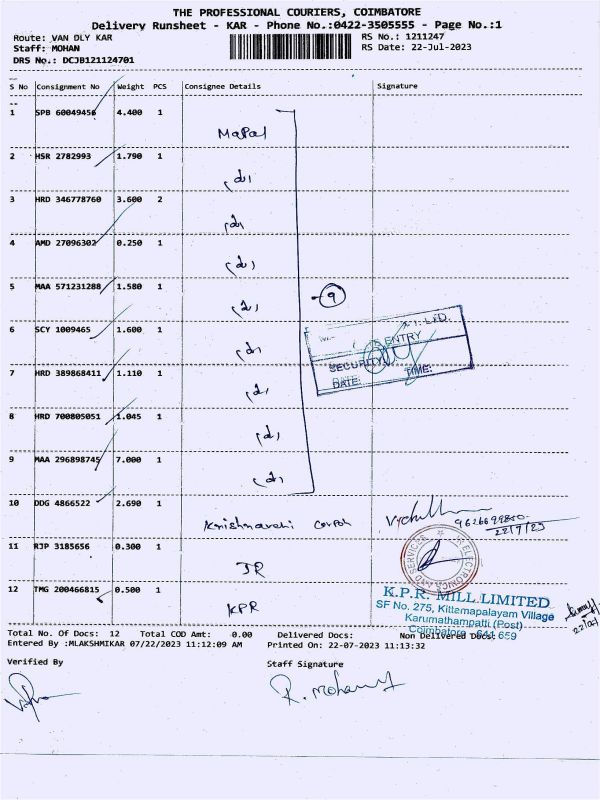 THE PROFESSIONAL COURIERS, COIMBATORE
Delivery Runsheet - KAR - Phone No.:0422-3505555 - Page No.:1
Route: VAN DLY KAR
RS No.: 1211247
Staff: MOHAN
RS Date: 22-Jul-2023
DRS No.: DCJB121124701
S No Consignment No Weight PCS Consignee Details Signature
1 SPB 60049456 4.400 1
2 HSR 2782993 1.790 1
3 HRD 346778760 3.600 2
4 AMD 27096302 0.250 1
5 MAA 571231288 1.580 1
9
6 SCY 1009465 1.600 1
ENTRY
SECURITY
DATE: TIME:
7 HRD 389868411 1.110 1
8 HRD 700805051 1.045 1
9 MAA 296898745 7.000 1
10 DDG 4866522 2.690 1
22/7/23
11 RJP 3185656 0.300 1 JR
12 TMG 200466815 0.500 1 KPR
K.P.R. MILL LIMITED
SF No. 275, Kittampalayam Village
Karumathampatti (Post)
Coimbatore - 641 659
Total No. Of Docs: 12 Total COD Amt: 0.00 Delivered Docs: Non Delivered Docs:
Entered By :MLAKSHMIKAR 07/22/2023 11:12:09 AM Printed On: 22-07-2023 11:13:32
Verified By Staff Signature
R. Mohan